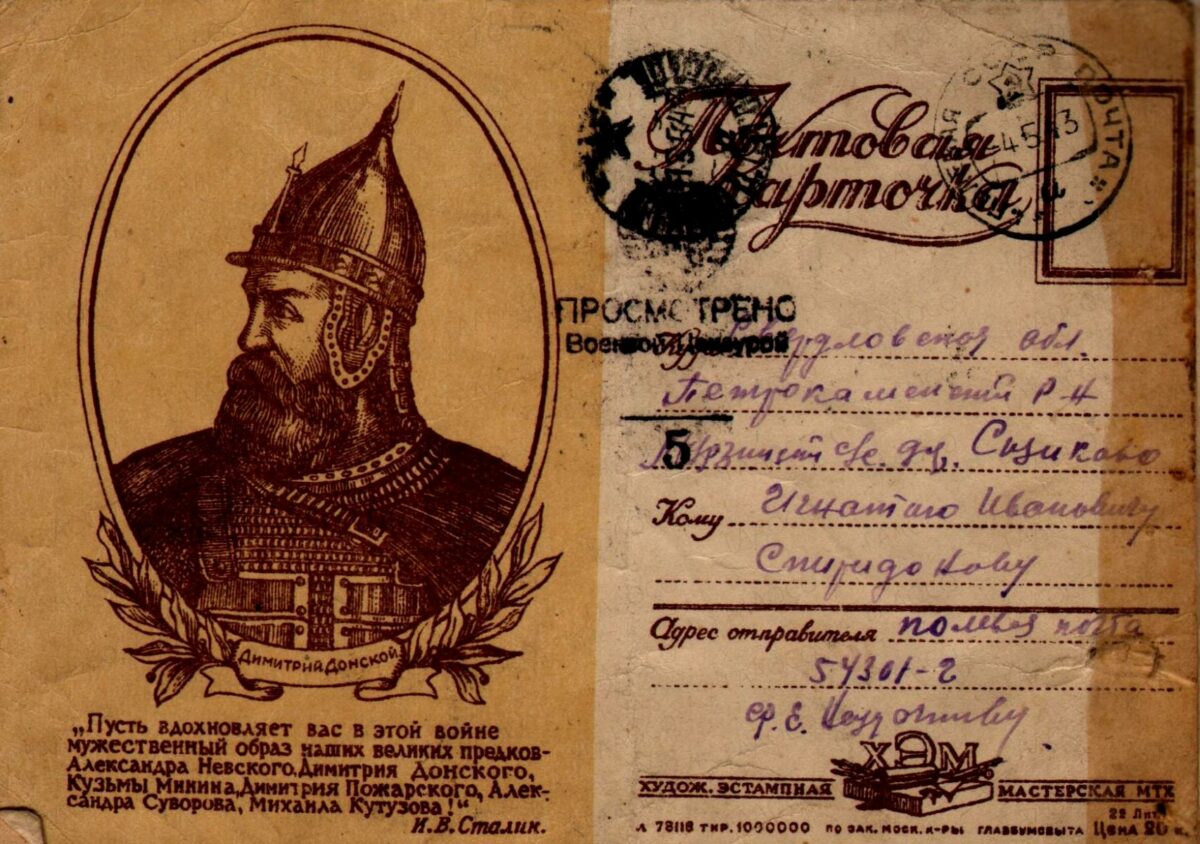 Димитрий Донской
„Пусть вдохновляет вас в этой войне
мужественный образ наших великих предков-
Александра Невского, Димитрия Донского,
Кузьмы Минина, Димитрия Пожарского, Алек-
сандра Суворова, Михаила Кутузова!“
И. В. Сталин.
Почтовая
карточка
ПОЧТА
ПРОСМОТРЕНО
Военной Цензурой
5
Куда Свердловская обл.
Петрокаменский Р-н
с/с. дер. Сизиково
Кому Игнатию Ивановичу
Спиридонову
Адрес отправителя полевая почта
57301-г
ХЭМ
ХУДОЖ. ЭСТАМПНАЯ МАСТЕРСКАЯ МТХ
Л 78116 ТИР. 1000000 ПО ЗАК. МОСК. К-РЫ ГЛАВБУМСБЫТА Цена 20 к.